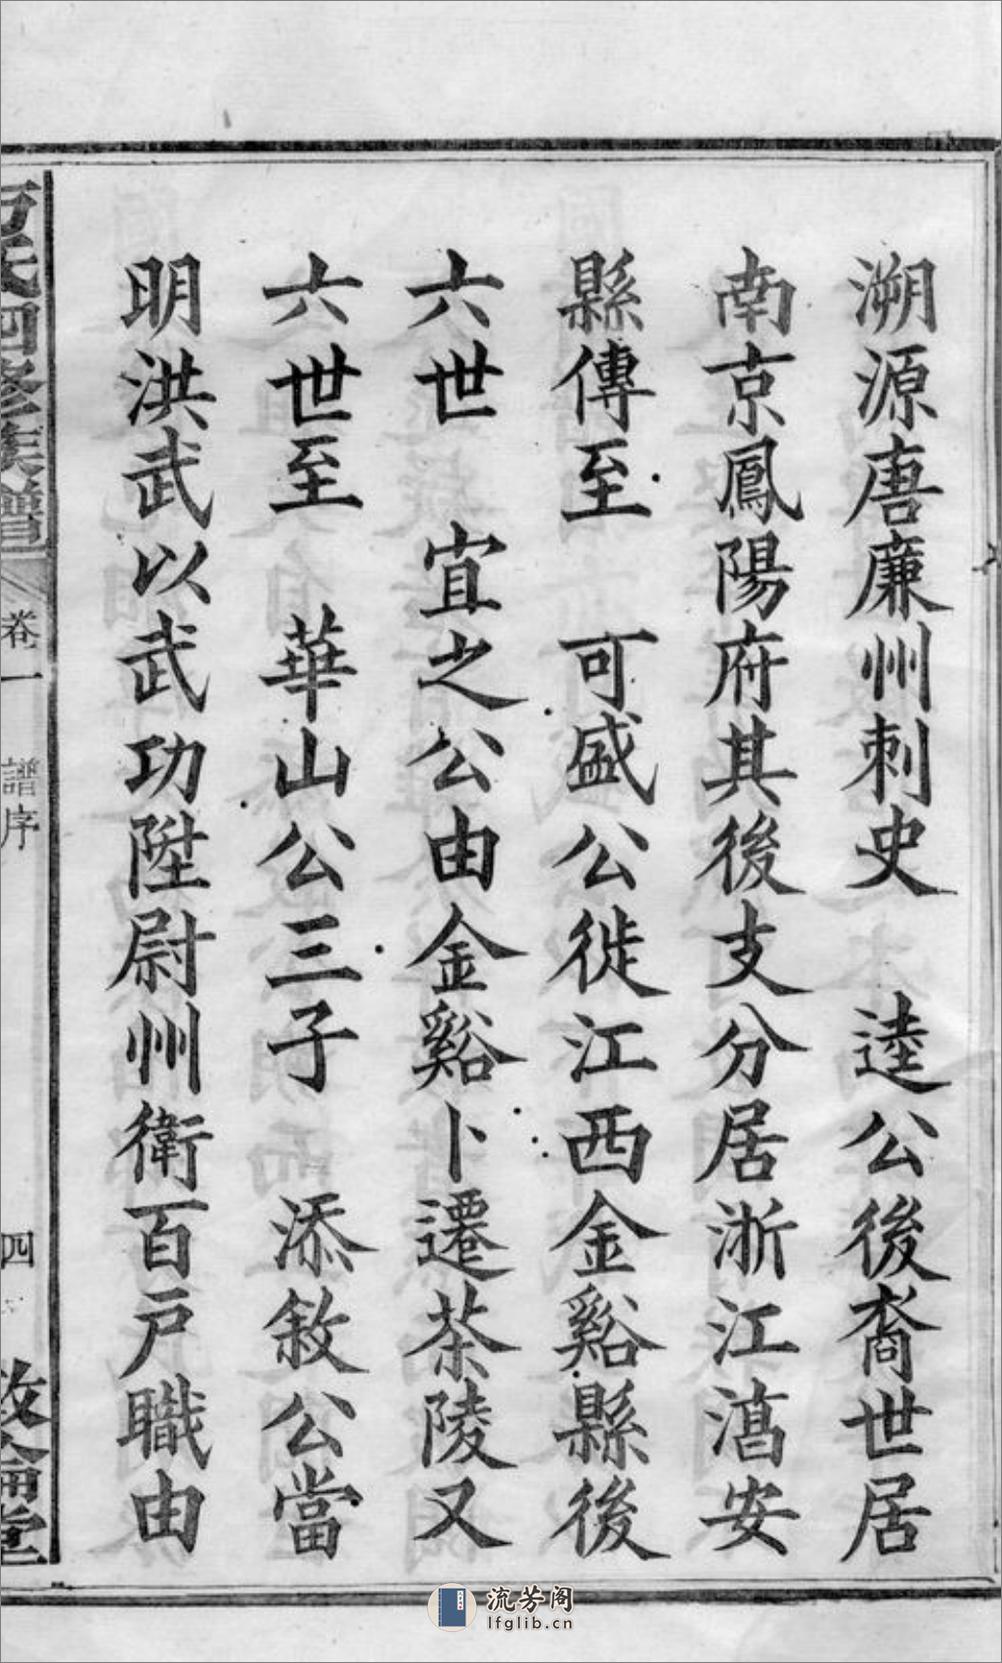 溯源唐廉州刺史　逵公後裔世居
南京鳳陽府其後支分居浙江湻安
縣傳至　可盛公徙江西金谿縣後
六世　宜之公由金谿卜遷茶陵又
六世至　華山公三子　添敘公當
明洪武以武功陞尉州衛百戶職由
氏四修族譜
卷一　譜序
四
敦倫堂
流芳阁
lfglib.cn